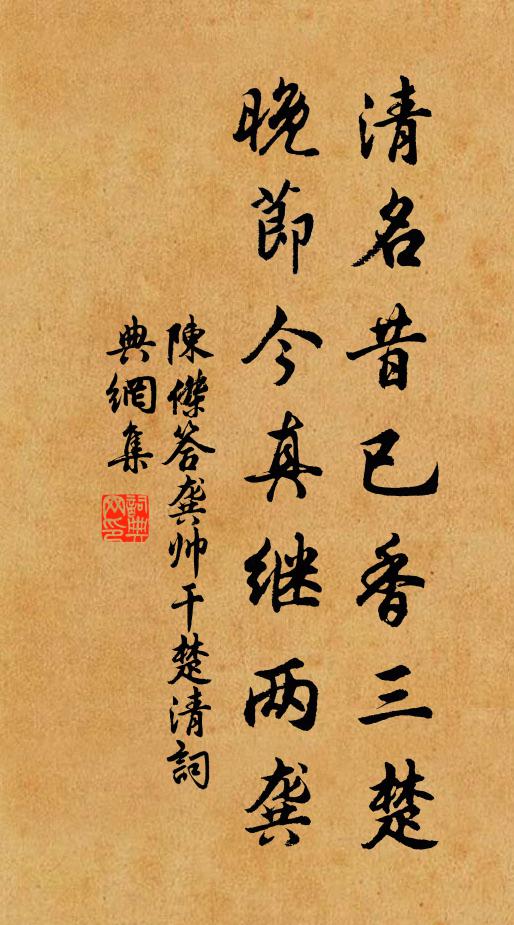 清名昔已香三楚
晚節今真继两龚
陳傑答龚帅干楚清詞
典網集
詞典网印